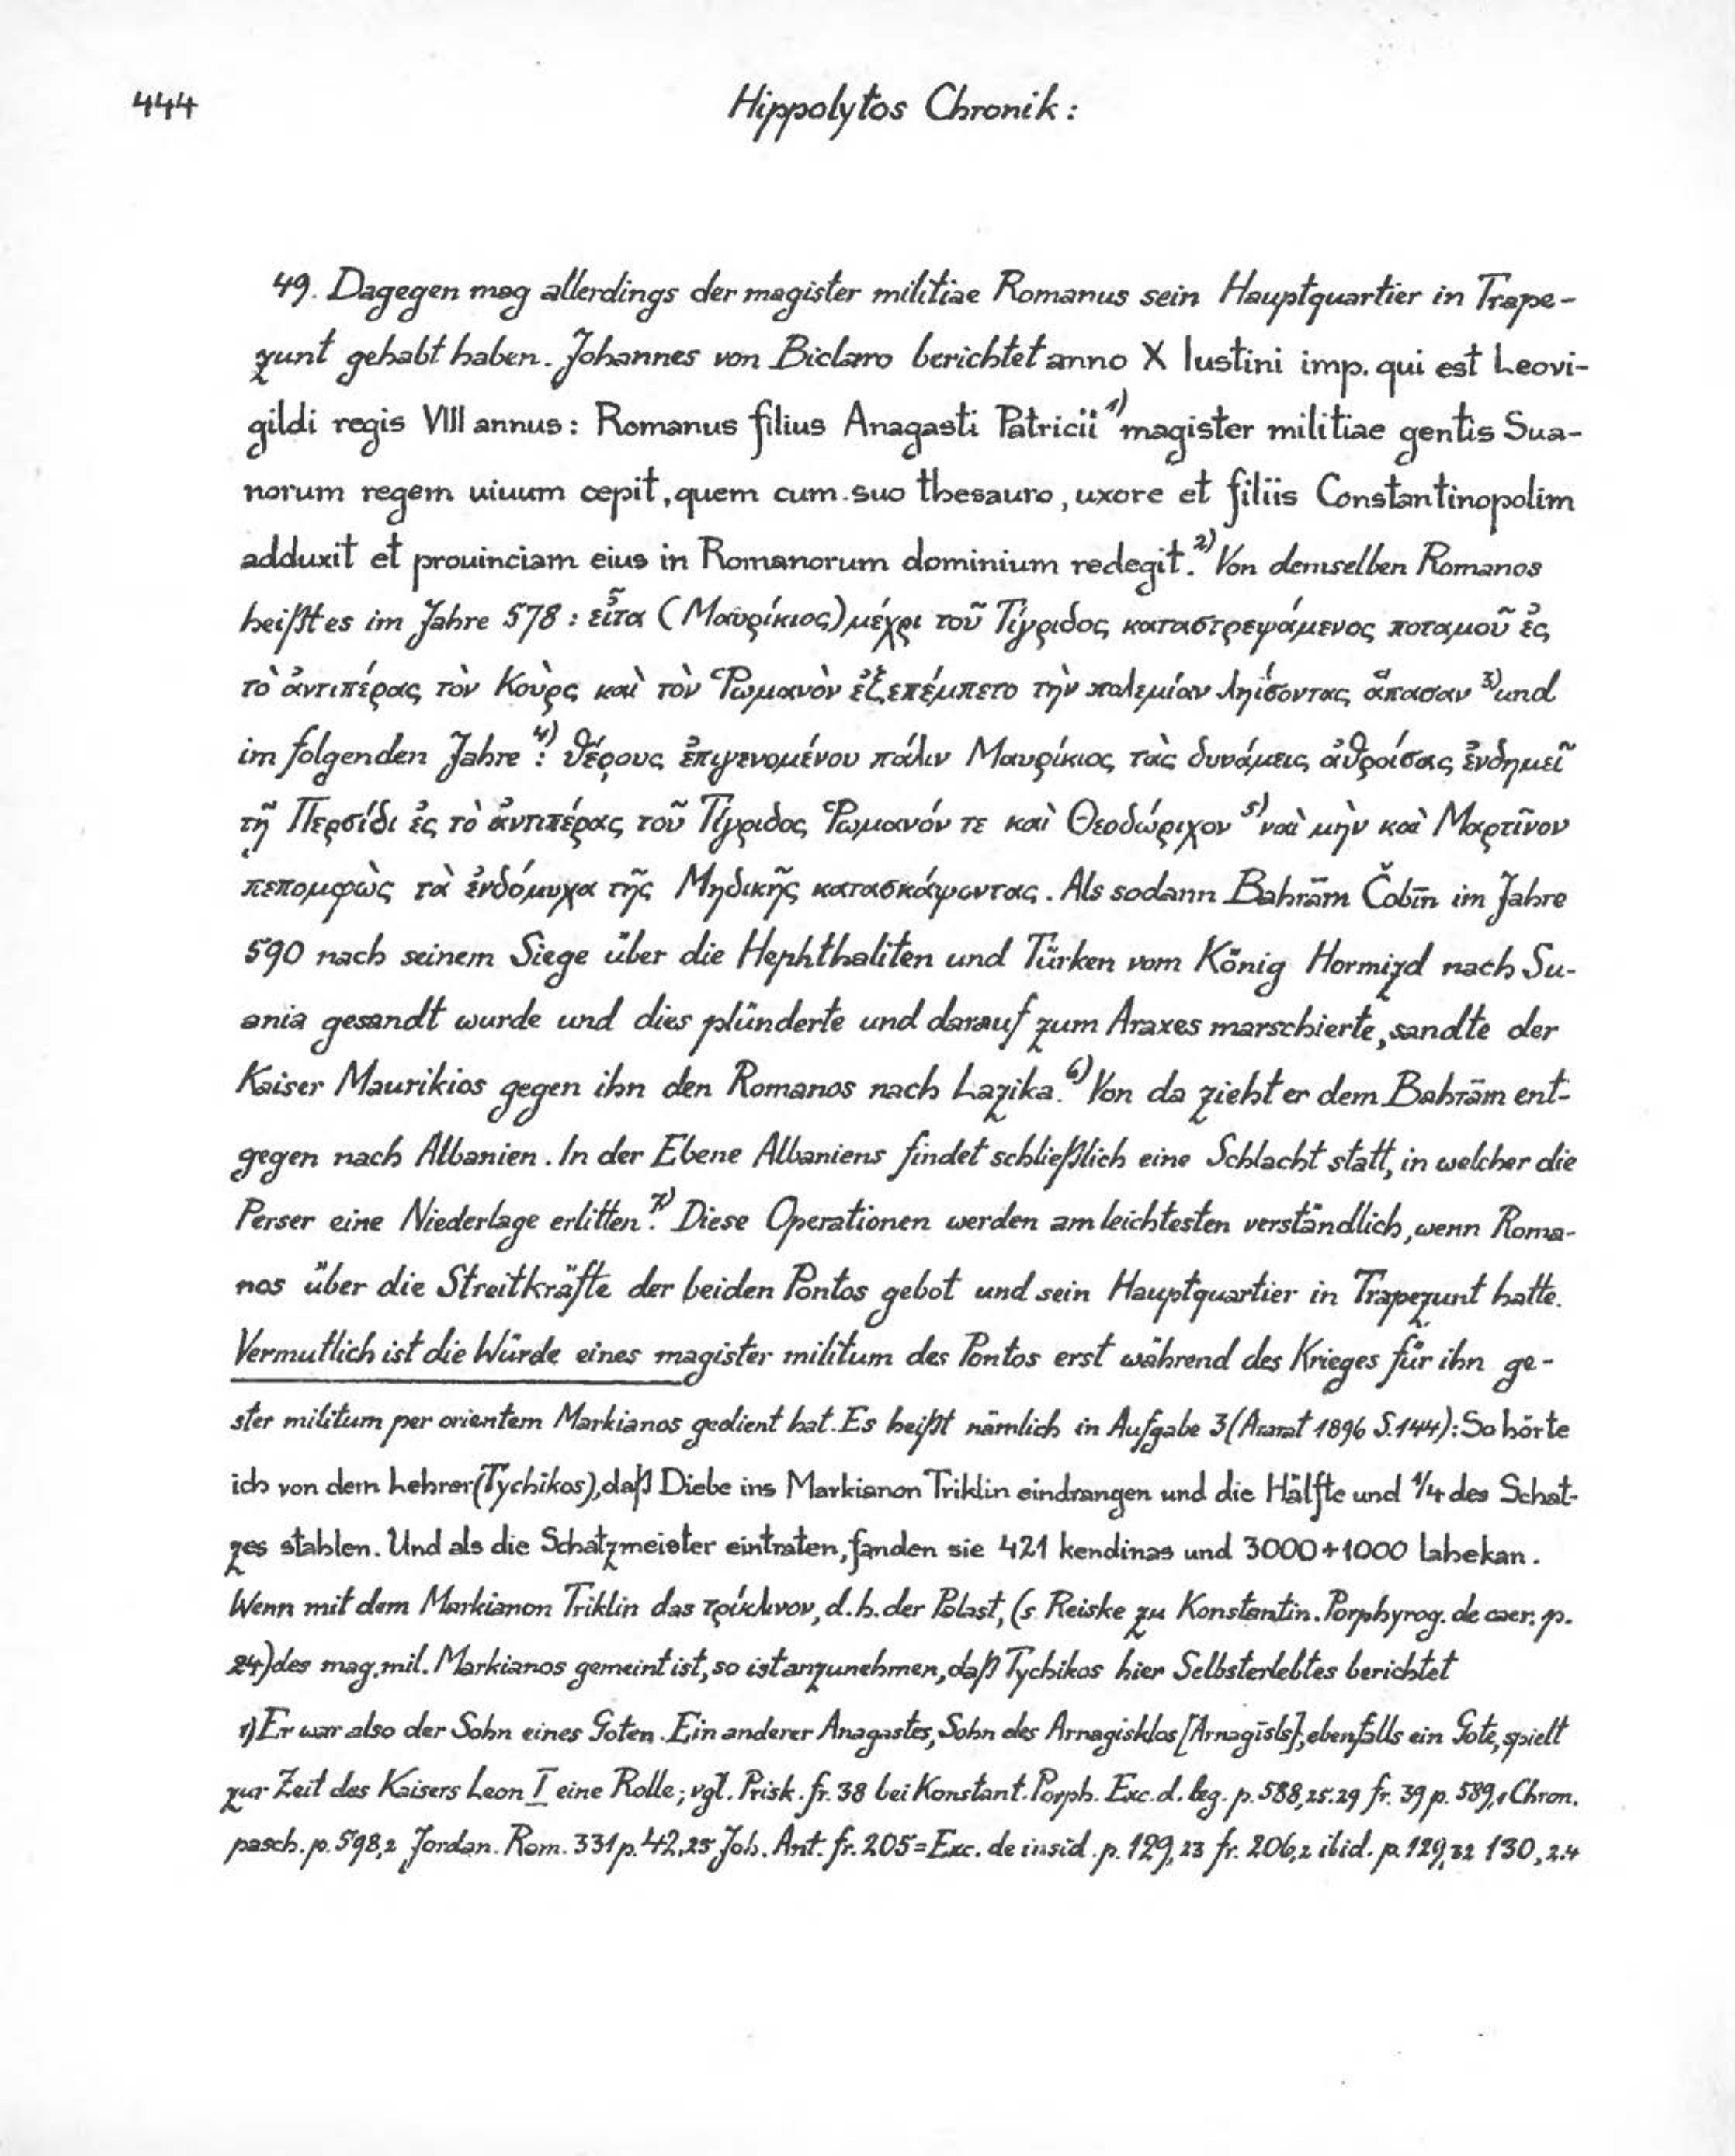 444
Hippolytos Chronik:
49. Dagegen mag allerdings der magister militiae Romanus sein Hauptquartier in Trape-
zunt gehabt haben. Johannes von Biclaro berichtet anno X Iustini imp. qui est Leovi-
gildi regis VIII annus: Romanus filius Anagasti Patricii 1) magister militiae gentis Sua-
norum regem uiuum cepit, quem cum suo thesauro, uxore et filiis Constantinopolim
adduxit et prouinciam eius in Romanorum dominium redegit. 2) Von demselben Romanos
heißt es im Jahre 578: εἶτα (Μαυρίκιος) μέχρι τοῦ Τίγριδος καταστρεψάμενος ποταμοῦ ἐς
τὸ ἀντιπέρας τὸν Κοὺρς καὶ τὸν Ῥωμανὸν ἐξεπέμπετο τὴν πολεμίαν ληίσοντας ἅπασαν 3) und
im folgenden Jahre 4): θέρους ἐπιγενομένου πάλιν Μαυρίκιος τὰς δυνάμεις ἀθροίσας ἐνδημεῖ
τῇ Περσίδι ἐς τὸ ἀντιπέρας τοῦ Τίγριδος Ῥωμανόν τε καὶ Θεοδώριχον 5) ναὶ μὴν καὶ Μαρτῖνον
πεπομφὼς τὰ ἐνδόμυχα τῆς Μηδικῆς κατασκάψοντας. Als sodann Bahrām Čobīn im Jahre
590 nach seinem Siege über die Hephthaliten und Türken vom König Hormizd nach Su-
ania gesandt wurde und dies plünderte und darauf zum Araxes marschierte, sandte der
Kaiser Maurikios gegen ihn den Romanos nach Lazika. 6) Von da zieht er dem Bahrām ent-
gegen nach Albanien. In der Ebene Albaniens findet schließlich eine Schlacht statt, in welcher die
Perser eine Niederlage erlitten. 7) Diese Operationen werden am leichtesten verständlich, wenn Roma-
nos über die Streitkräfte der beiden Pontos gebot und sein Hauptquartier in Trapezunt hatte.
Vermutlich ist die Würde eines magister militum des Pontos erst während des Krieges für ihn ge-
ster militum per orientem Markianos gedient hat. Es heißt nämlich in Aufgabe 3 (Ararat 1896 S. 144): So hörte
ich von dem Lehrer (Tychikos), daß Diebe ins Markianon Triklin eindrangen und die Hälfte und 1/4 des Schat-
zes stahlen. Und als die Schatzmeister eintraten, fanden sie 421 kendinas und 3000+1000 lahekan.
Wenn mit dem Markianon Triklin das τρίκλινον, d.h. der Palast, (s. Reiske zu Konstantin. Porphyrog. de caer. p.
24) des mag. mil. Markianos gemeint ist, so ist anzunehmen, daß Tychikos hier Selbsterlebtes berichtet
1) Er war also der Sohn eines Goten. Ein anderer Anagastes, Sohn des Arnagisklos [Arnagīsls], ebenfalls ein Gote, spielt
zur Zeit des Kaisers Leon I eine Rolle; vgl. Prisk. fr. 38 bei Konstant. Porph. Exc. d. leg. p. 588,25.29 fr. 39 p. 589,1 Chron.
pasch. p. 598,2 Jordan. Rom. 331 p. 42,25 Joh. Ant. fr. 205 = Exc. de insid. p. 129,23 fr. 206,2 ibid. p. 129,32 130,2.4